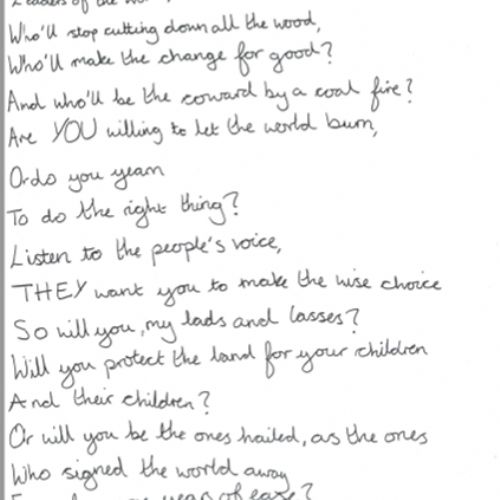 Leaders of the
Who'll stop cutting down all the wood,
Who'll make the change for good?
And who'll be the coward by a coal fire?
Are YOU willing to let the world burn,
Or do you yearn
To do the right thing?
Listen to the people's voice,
THEY want you to make the wise choice
So will you, my lads and lasses?
Will you protect the land for your children
And their children?
Or will you be the ones hailed, as the ones
Who signed the world away
years of ease?